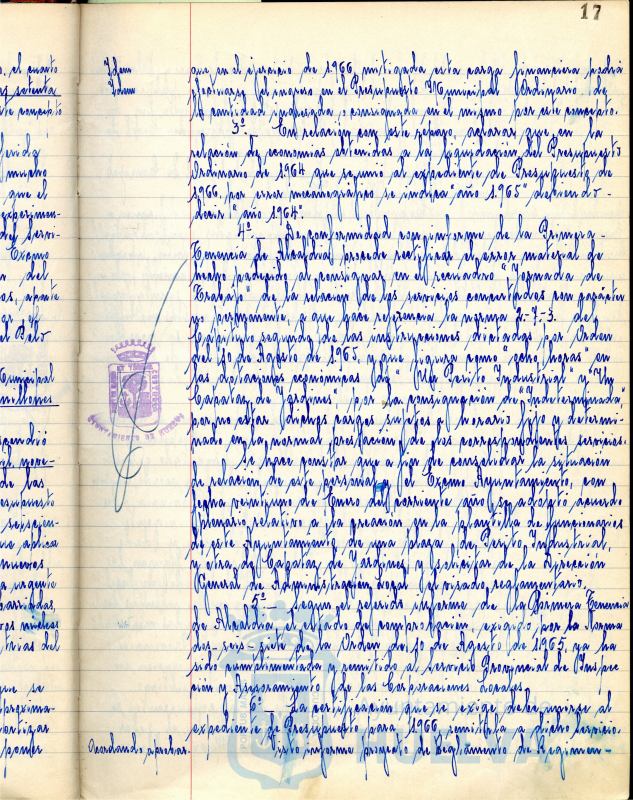 17
Idem
Idem
que en el ejercicio de 1966, mitigada esta carga financiera podrá
el ingreso en el Presupuesto Municipal Ordinario de
la cantidad consignada en el mismo por este concepto.
3º.- Con relación con este reparo, aclarar que en la
relación de economías obtenidas a la liquidación del Presupuesto
Ordinario de 1964 que se unió al expediente de Presupuesto de
1966, por error mecanográfico se indica "año 1965" debiendo
decir "año 1964".
4º.- De conformidad con informe de la Primera
Tenencia de Alcaldía procede rectificar el error material de
hecho padecido al consignar en el recuadro "Jornada de
Trabajo" de la relación de los servicios concertados con carácter
no permanente, a que hace referencia la norma 2-7-3. del
Capítulo segundo de las instrucciones dictadas por Orden
del 10 de Agosto de 1965, y que figura como "ocho horas" en
las dotaciones económicas de "Un Perito Industrial" y "Un
Capataz de Jardines" por la consignación de "Indeterminada"
porque estar dichos cargos sujetos a horario fijo y determi-
nado en la normal prestación de los correspondientes servicios.
Se hace constar que a fin de consolidar la situación
de relación de este personal, el Excmo Ayuntamiento, con
fecha veintiuno de Enero del corriente año, adoptó acuerdo
plenario relativo a la creación en la plantilla de funcionarios
de este Ayuntamiento de una plaza de Perito Industrial,
y otra de Capataz de Jardines y solicitar de la Dirección
General de Administración Local el visado reglamentario.
5º.- Según el referido informe de la Primera Tenencia
de Alcaldía el estado de comprobación, exigido por la Norma
dos-seis-siete de la Orden de 10 de Agosto de 1965, ya ha
sido cumplimentada y remitido al Servicio Provincial de Inspec
ción y Asesoramiento de las Corporaciones Locales.
6º.- La certificación que se exige debe unirse al
expediente de Presupuesto para 1966 remitirla a dicho Servicio.
Acordando aprobar.
Visto informe proyecto de Reglamento de Régimen-
AYUNTAMIENTO DE HUELVA
HUELVA